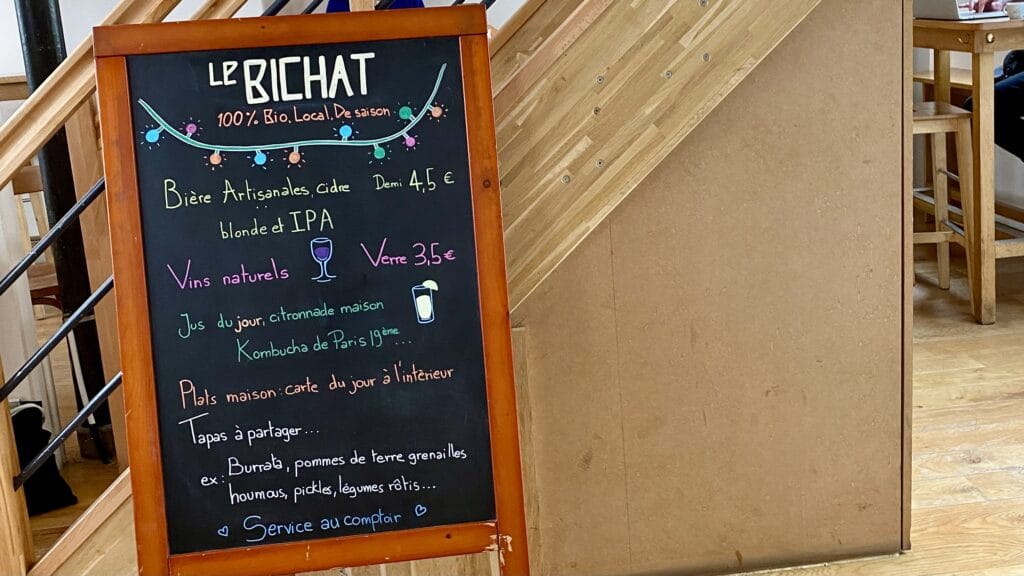 Le BICHAT
100% Bio, Local, De saison
Bière Artisanales, cidre Demi 4,5 €
blonde et IPA
Vins naturels Verre 3,5€
Jus du jour, citronnade maison
Kombucha de Paris 19ème...
Plats maison : carte du jour à l'intérieur
Tapas à partager...
ex : Burrata, pommes de terre grenailles
houmous, pickles, légumes rôtis...
Service au comptoir